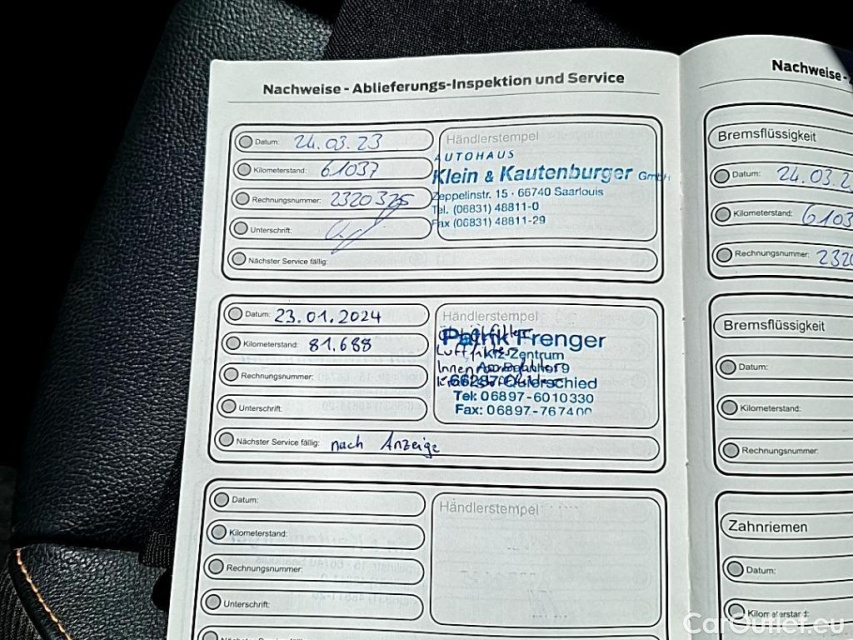 Nachweise - Ablieferungs-Inspektion und Service
Datum: 24.03.23
Kilometerstand: 61037
Rechnungsnummer: 2320325
Unterschrift:
Nächster Service fällig:
Händlerstempel
AUTOHAUS
Klein & Kautenburger GmbH
Zeppelinstr. 15 · 66740 Saarlouis
Tel. (06831) 48811-0
Fax (06831) 48811-29
Datum: 23.01.2024
Kilometerstand: 81.688
Rechnungsnummer:
Unterschrift:
Nächster Service fällig: nach Anzeige
Händlerstempel
Patrik Frenger
Kfz-Zentrum
66287 Quierschied
Tel: 06897-6010330
Fax: 06897-767400
Datum:
Kilometerstand:
Rechnungsnummer:
Unterschrift:
Händlerstempel
Nachweise -
Bremsflüssigkeit
Datum: 24.03.2
Kilometerstand: 6103
Rechnungsnummer: 232
Bremsflüssigkeit
Datum:
Kilometerstand:
Rechnungsnummer:
Zahnriemen
Datum:
Kilometerstand:
CarOutlet.eu